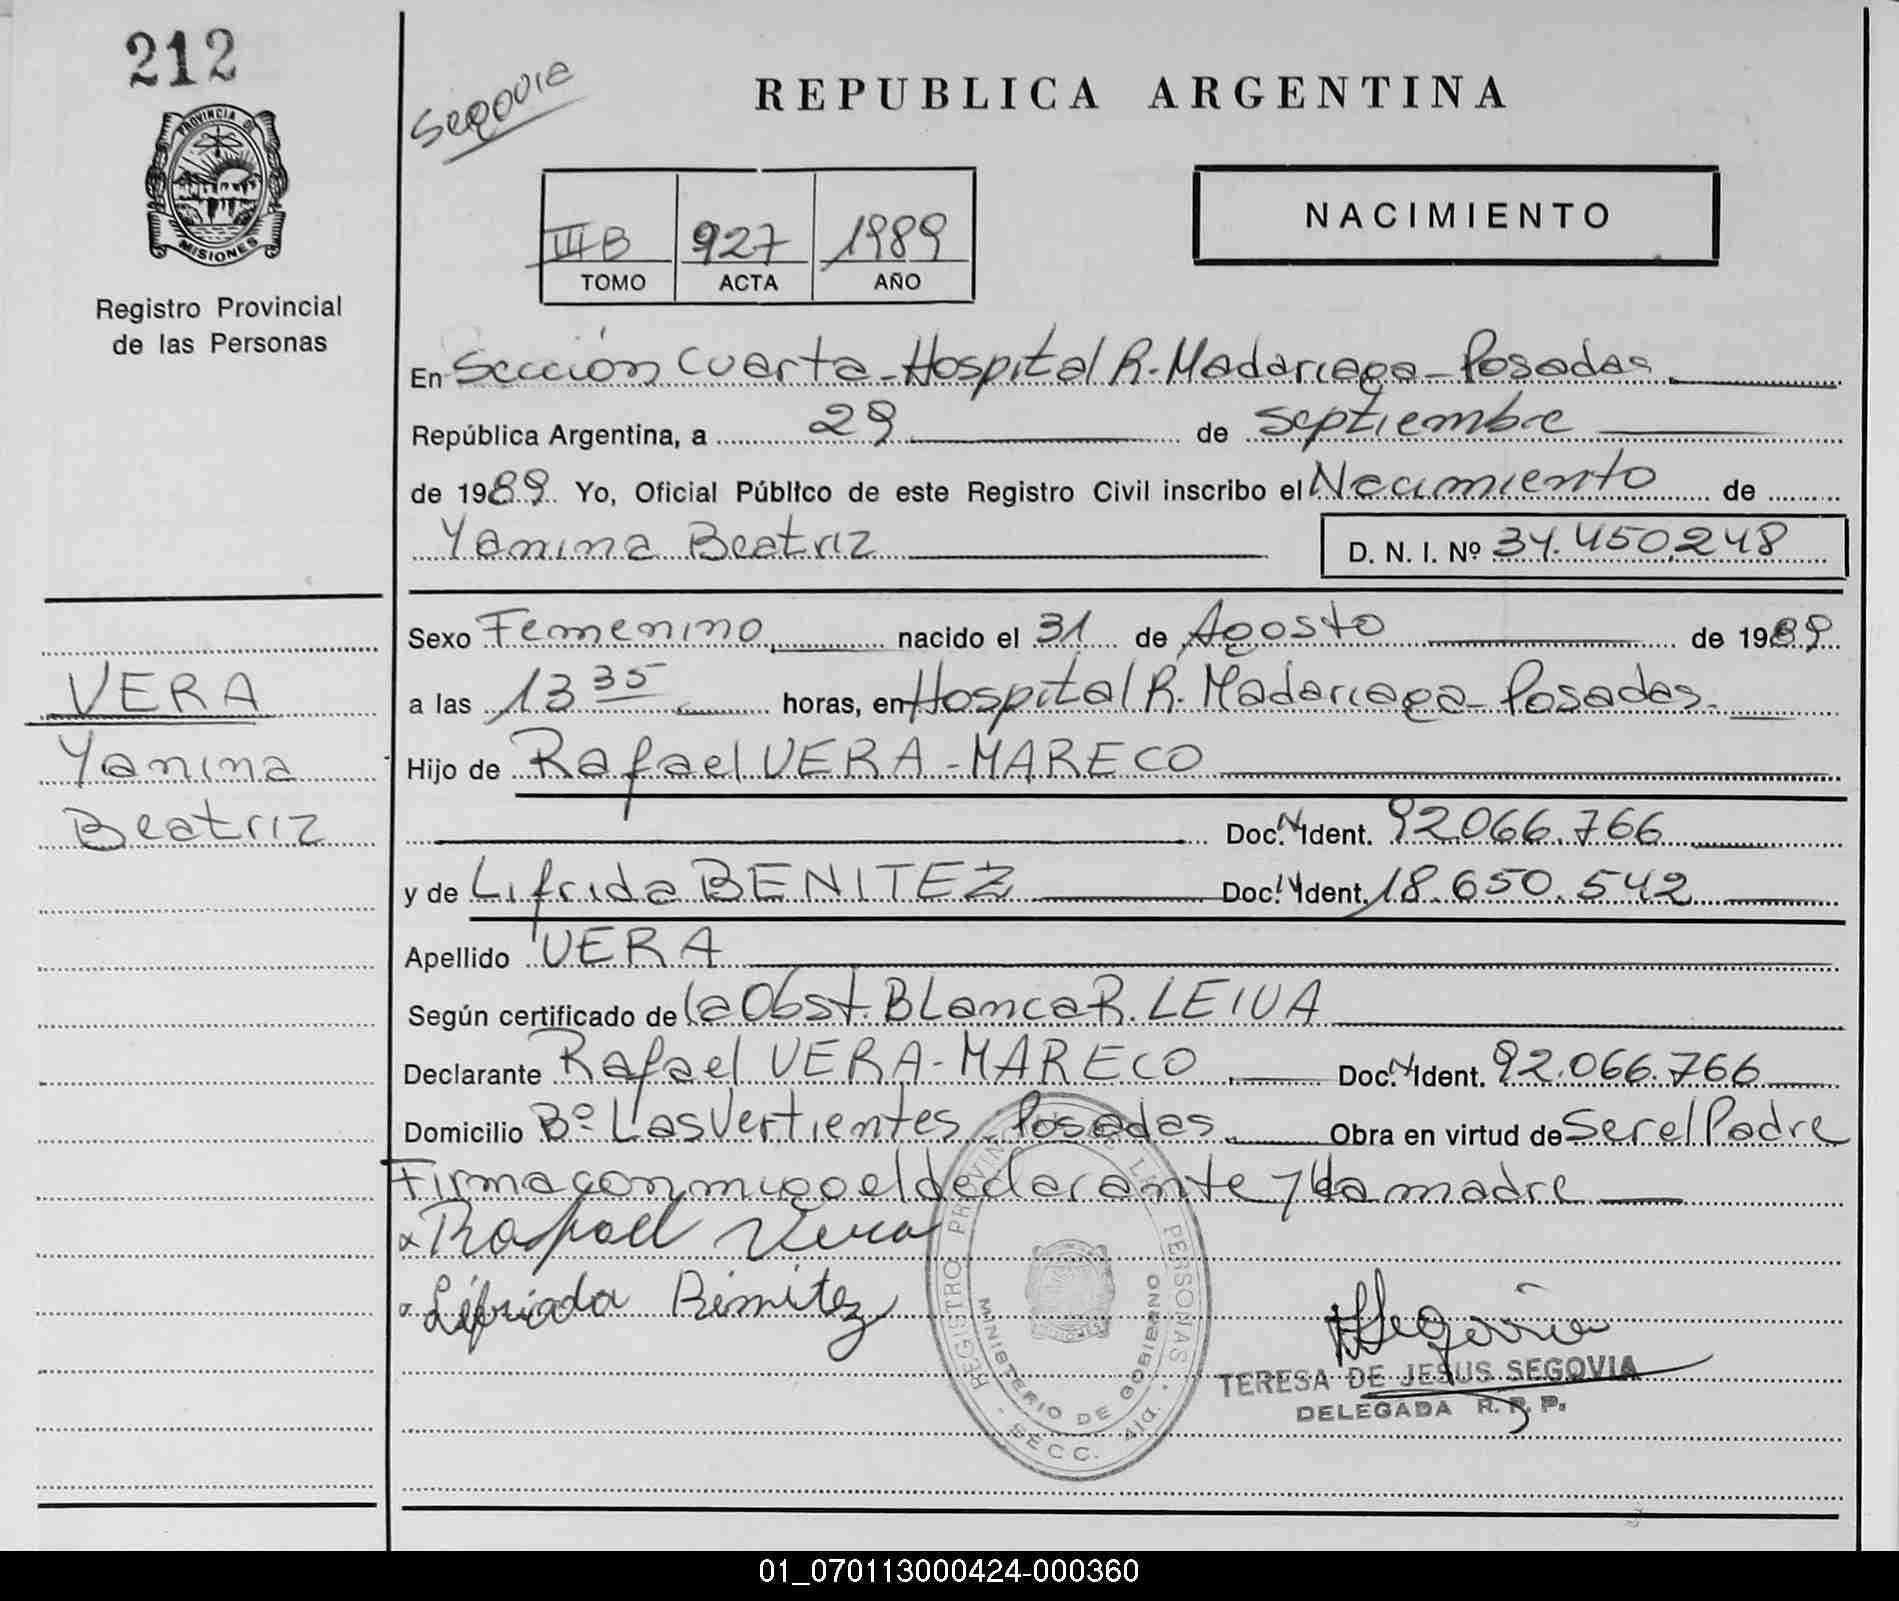 212
Segovia
REPUBLICA ARGENTINA
PROVINCIA DE
MISIONES
Registro Provincial
de las Personas
IIIB 927 1989
TOMO ACTA AÑO
NACIMIENTO
En Sección Cuarta - Hospital R. Madariaga - Posadas
República Argentina, a 29 de Septiembre
de 1989. Yo, Oficial Público de este Registro Civil inscribo el Nacimiento de
Yanina Beatriz D. N. I. Nº 34.450.248
Sexo Femenino nacido el 31 de Agosto de 1989
a las 13 35 horas, en Hospital R. Madariaga - Posadas.
Hijo de Rafael VERA - MARECO
Doc. N Ident. 92.066.766
y de Lifrida BENITEZ Doc. N Ident. 18.650.542
Apellido VERA
Según certificado de la Obst. Blanca R. LEIVA
Declarante Rafael VERA - MARECO Doc. N Ident. 92.066.766
Domicilio Bº Las Vertientes - Posadas Obra en virtud de Ser el Padre
Firma conmigo el declarante y la madre
Rafael Vera
Lifrida Benitez
VERA
Yanina
Beatriz
REGISTRO PROVINCIAL DE LAS PERSONAS
MINISTERIO DE GOBIERNO
SECC. 4ta.
Segovia
TERESA DE JESUS SEGOVIA
DELEGADA R. P. P.
01_070113000424-000360